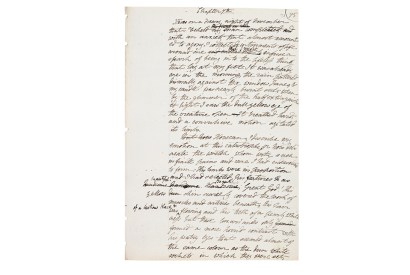 Chapter 7th
It was on a dreary night of November
that I beheld my man completed and
with an anxiety that almost amount
ed to agony I collected instruments of life
around me
spark of being into the lifeless thing
that lay at my feet. It was already
one in the morning, the rain pattered
dismally against the window panes &
my candle was nearly burnt out, when
by the glimmer of the half extinguish
ed light I saw the dull yellow eye of
the creature open. It breathed hard
and a convulsive motion agitated
its limbs.
But how can I describe my
emotion at this catastrophe; or how deli
neate the wretch whom with such
infinite pains and care I had endeavoured
to form. His limbs were in proportion
and I had selected his features
handsome. Great God! His
yellow skin scarcely covered the work of
muscles and arteries beneath; his hair
of a lustrous black
flowing and his teeth of a pearly white
ness but these luxuriances only
formed a more horrid contrast with
his watry eyes that seemed almost of
the same colour as the dun white
sockets in which they were set,